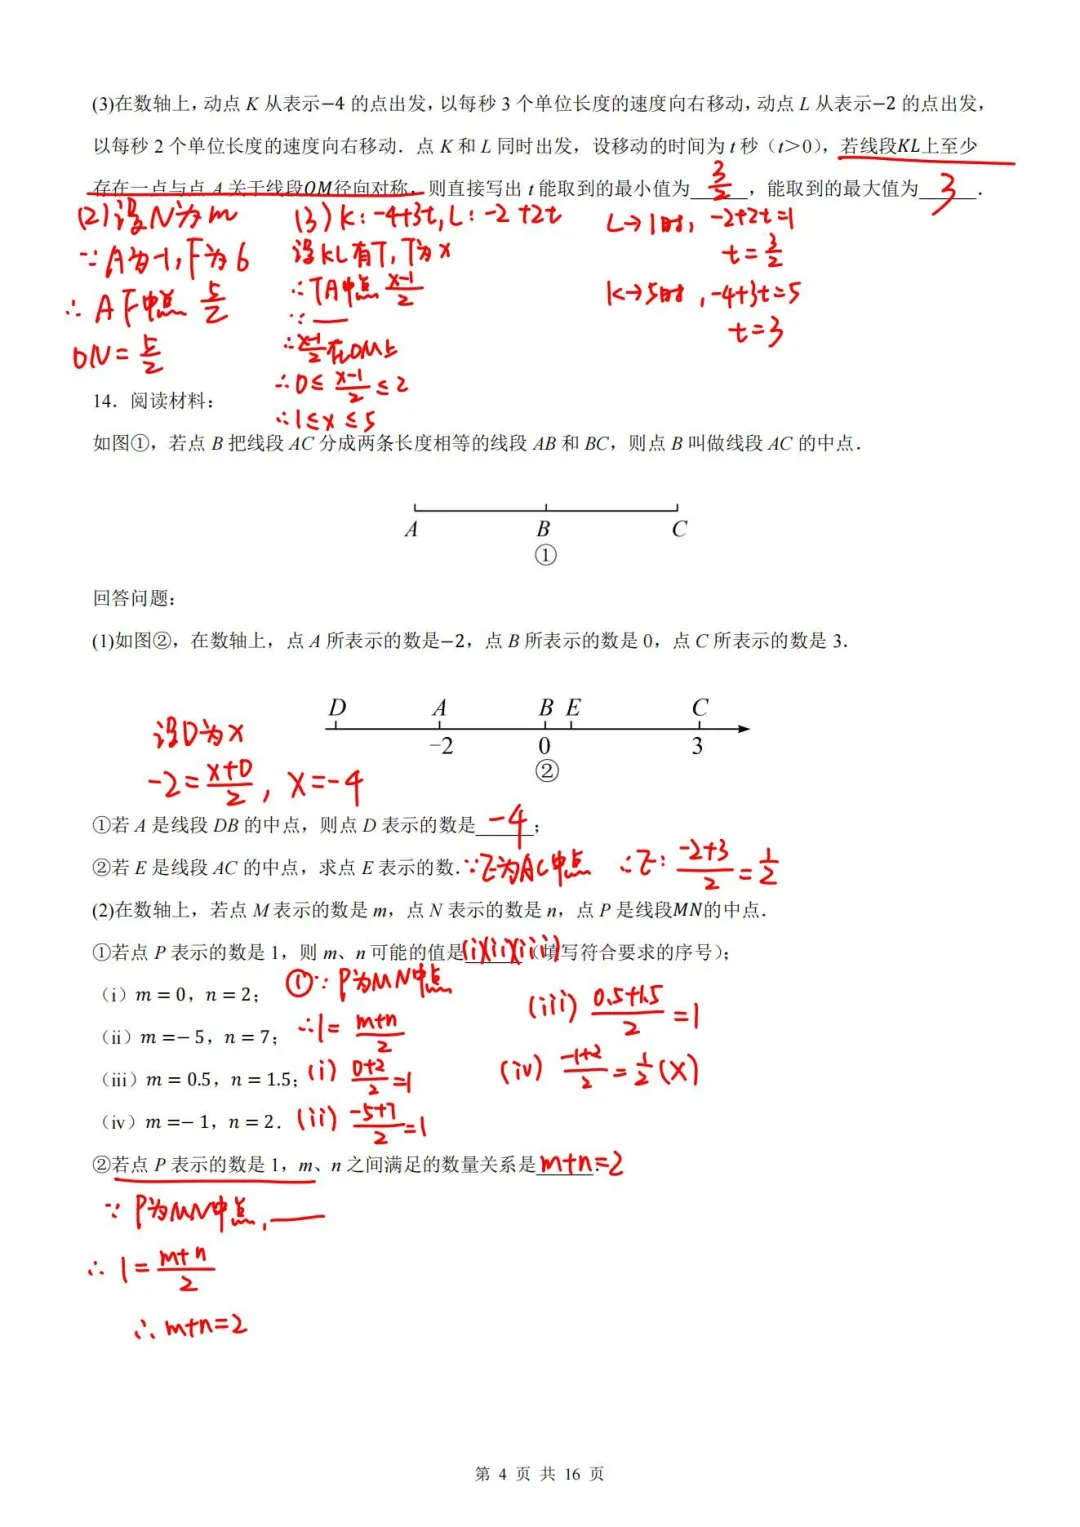 (3)在数轴上,动点 K 从表示−4 的点出发,以每秒 3 个单位长度的速度向右移动,动点 L 从表示−2 的点出发,
以每秒 2 个单位长度的速度向右移动．点 K 和 L 同时出发，设移动的时间为 t 秒（t＞0），若线段KL上至少
存在一点与点 A 关于线段OM径向对称，则直接写出 t 能取到的最小值为 3/2 ，能取到的最大值为 3 ．
(2)设N为m
∵A为-1,F为6
∴AF中点 5/2
ON=5/2
(3)K:-4+3t,L:-2+2t
设KL有T,T为x
∴TA中点 x-1/2
∵
∴x-1/2在OM上
∴0≤x-1/2≤2
∴1≤x≤5
L→1时,-2+2t=1
t=3/2
K→5时,-4+3t=5
t=3
14．阅读材料：
如图①，若点 B 把线段 AC 分成两条长度相等的线段 AB 和 BC，则点 B 叫做线段 AC 的中点．
A B C
①
回答问题：
(1)如图②，在数轴上，点 A 所表示的数是−2，点 B 所表示的数是 0，点 C 所表示的数是 3．
D A B E C
−2 0 3
②
设D为x
-2=x+0/2,x=-4
①若 A 是线段 DB 的中点，则点 D 表示的数是 -4 ；
②若 E 是线段 AC 的中点，求点 E 表示的数．∵E为AC中点 ∴E:-2+3/2=1/2
(2)在数轴上，若点 M 表示的数是 m，点 N 表示的数是 n，点 P 是线段MN的中点．
①若点 P 表示的数是 1，则 m、n 可能的值是(i)(ii)(iii)（填写符合要求的序号）；
（i）m = 0，n = 2；
（ii）m =− 5，n = 7；
（iii）m = 0.5，n = 1.5；
（iv）m =− 1，n = 2．
①∵P为MN中点
∴1=m+n/2
(i)0+2/2=1
(ii)-5+7/2=1
(iii)0.5+1.5/2=1
(iv)-1+2/2=1/2(X)
②若点 P 表示的数是 1，m、n 之间满足的数量关系是 m+n=2
∵P为MN中点,
∴1=m+n/2
∴m+n=2
第 4 页 共 16 页